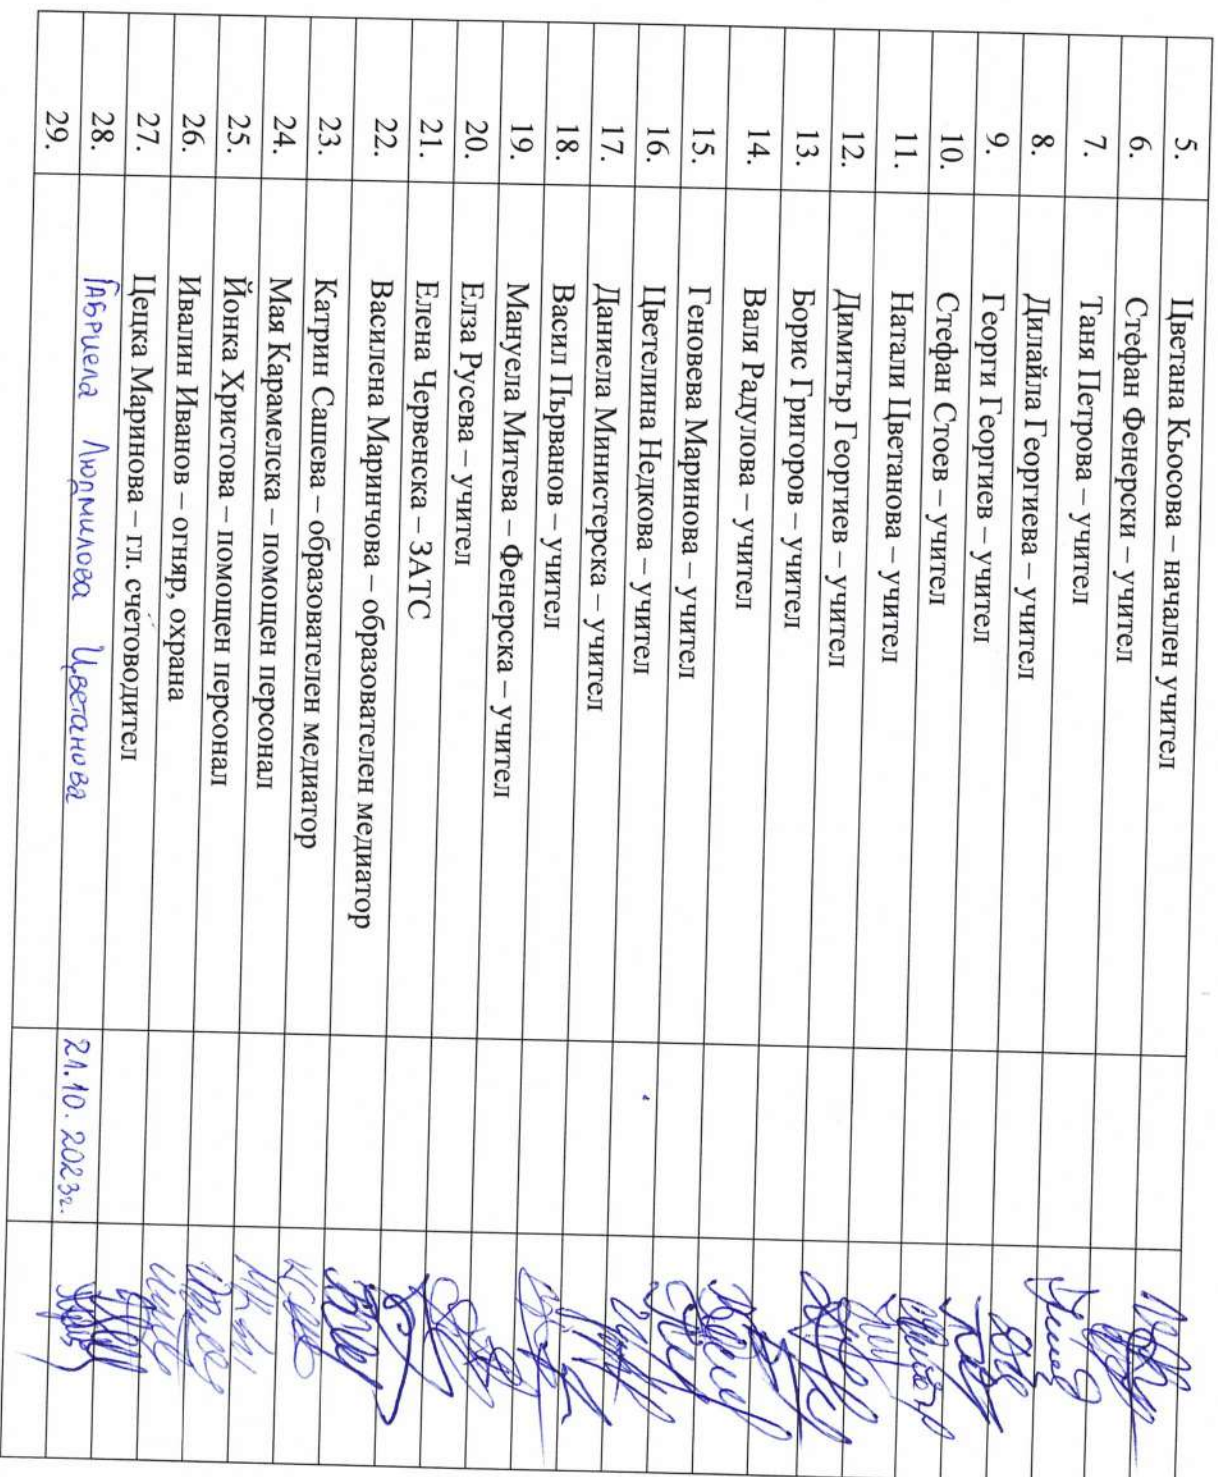 5. Цветана Кьосова – начален учител
6. Стефан Фенерски – учител
7. Таня Петрова – учител
8. Дилайла Георгиева – учител
9. Георги Георгиев – учител
10. Стефан Стоев – учител
11. Натали Цветанова – учител
12. Димитър Георгиев – учител
13. Борис Григоров – учител
14. Валя Радулова – учител
15. Геновева Маринова – учител
16. Цветелина Недкова – учител
17. Даниела Министерска – учител
18. Васил Първанов – учител
19. Мануела Митева – Фенерска – учител
20. Елза Русева – учител
21. Елена Червенска – ЗАТС
22. Василена Маринчова – образователен медиатор
23. Катрин Сашева – образователен медиатор
24. Мая Карамелска – помощен персонал
25. Йонка Христова – помощен персонал
26. Ивалин Иванов – огняр, охрана
27. Цецка Маринова – гл. счетоводител
28. Габриела Людмилова Цветанова 21.10.2023г.
29.